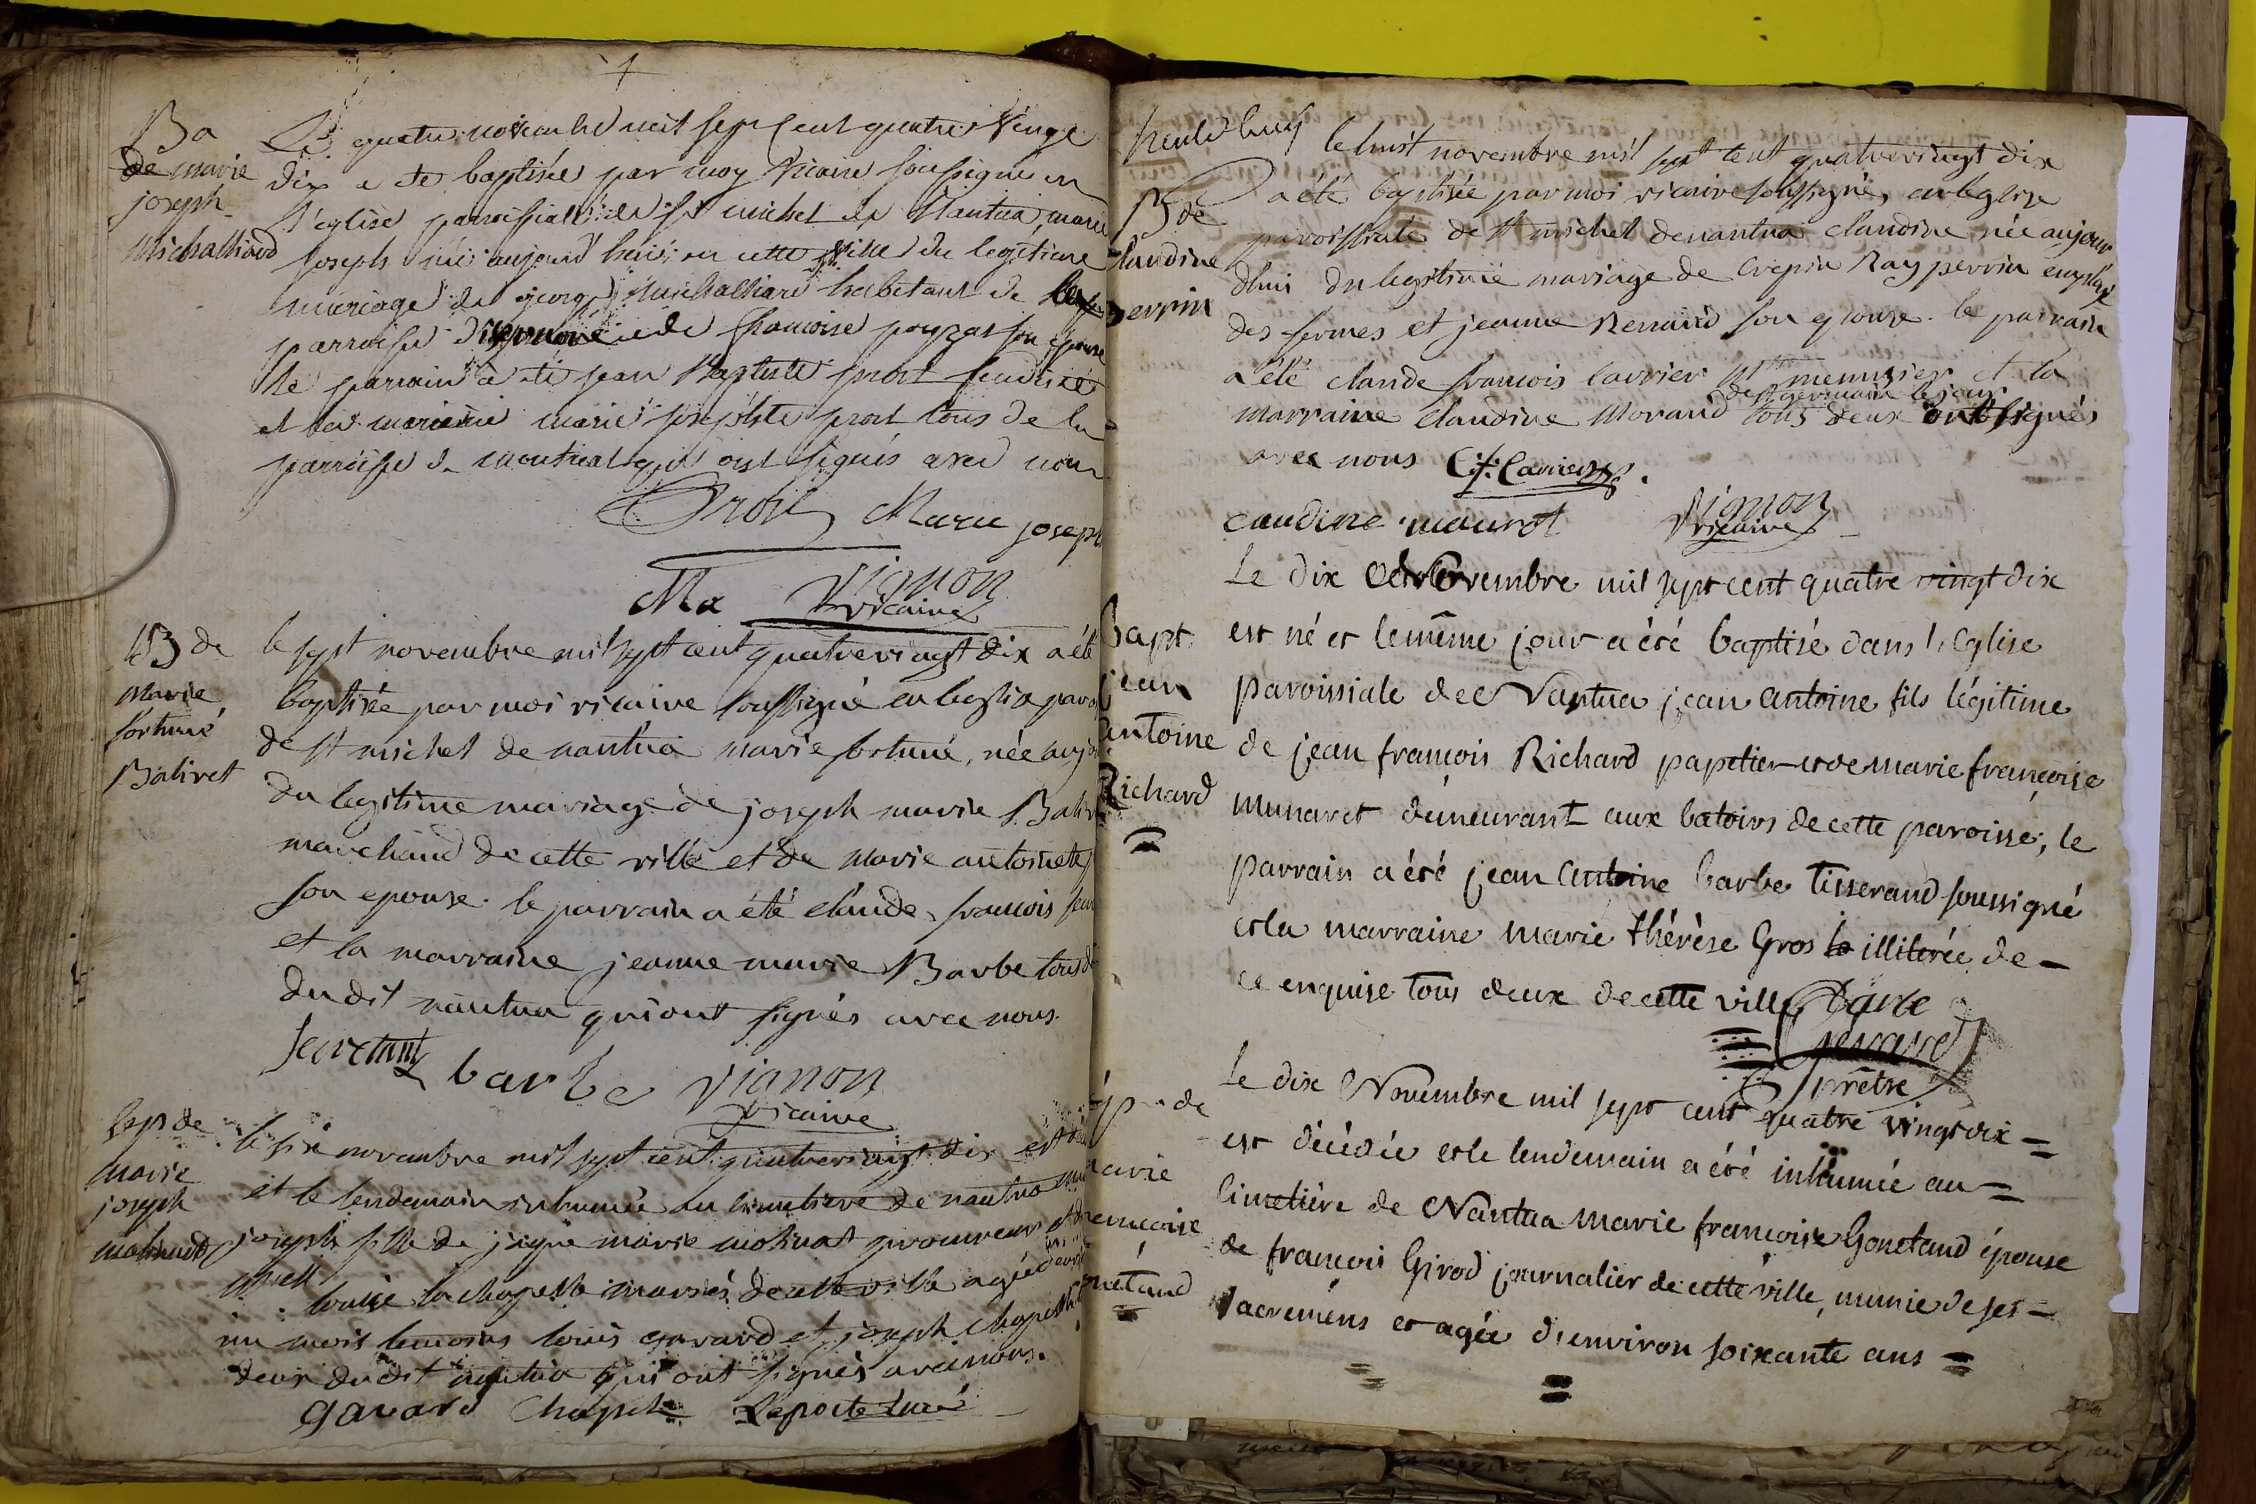 Ba
de marie
joseph
Michalliard
Le quatre novembre mil sept cent quatre vingt
dix a ete baptisée par moy vicaire soussigné en
l'eglise parroissialle de st michel de Nantua, marie
joseph née aujourd'huis en cette ville du legitime
mariage de george Michalliard habitant de
parroisse de et de francoise poyzat son épouse
le parrain a eté jean Baptiste prost
et la marraine marie josephte prost tous de la
parroisse de montreal qui ont signés avec nous
Prost Marie joseph
Ma Vignon
vicaire
B de
Marie
fortuné
Balivet
le sept novembre mil sept cent quatrevingt dix a été
baptisée par moi vicaire soussigné en leglise paroi
de st michel de nantua marie fortuné, née aujo
du legitime mariage de joseph marie Baliv
marchand de cette ville et de Marie antoinete
son epouse. le parrain a été claude françois
et la marraine jeanne marie Barbe tous d
du dit nantua qui ont signés avec nous.
Secretant barbe Vignon
vicaire
Sep de
Marie
joseph
molinard
le six novembre mil sept cent quatrevingt dix est
et le lendemain inhumée au cimetiere de nantua
joseph fille de marie molinat procureur et de
louise la chapelle mariés de cette ville agée
un mois temoins louis gavard et joseph chapelle
deux du dit nantua qui ont signés avec nous.
gavard Chapelle Laporte curé
B de
Claudine
perrin
le huit novembre mil sept cent quatrevingt dix
a été baptisée par moi vicaire soussigné, en leglise
paroissiale de st michel de nantua claudine née aujour
dhui du legitime mariage de Crepin Ray perrin employé
des fermes et jeanne Renaud son epouse. le parrain
a été claude francois carrier menuisier et la
de st germain le joux
marraine claudine Morand tous deux ont signés
avec nous C.f. Carrier
caudine mauret Vignon
vicaire
Bapt
jean
antoine
Richard
Le dix novembre mil sept cent quatre vingt dix
est né et le même jour a été baptisé dans l'Eglise
paroissiale de Nantua jean antoine fils légitime
de jean francois Richard papetier et de marie françoise
Munaret demeurant aux batoirs de cette paroisse; le
parrain a été jean antoine barbe Tisserand soussigné
et la marraine Marie thérèse Gros illiterée de
ce enquise tous deux de cette ville Barbe
prêtre
de
marie
francoise
gonetand
Le dix Novembre mil sept cent quatre vingt dix
est décédée et le lendemain a été inhumée au
Cimetière de Nantua Marie francoise Gonetand épouse
de françois Girod journalier de cette ville, munie de ses
sacremens et agée d'environ soixante ans